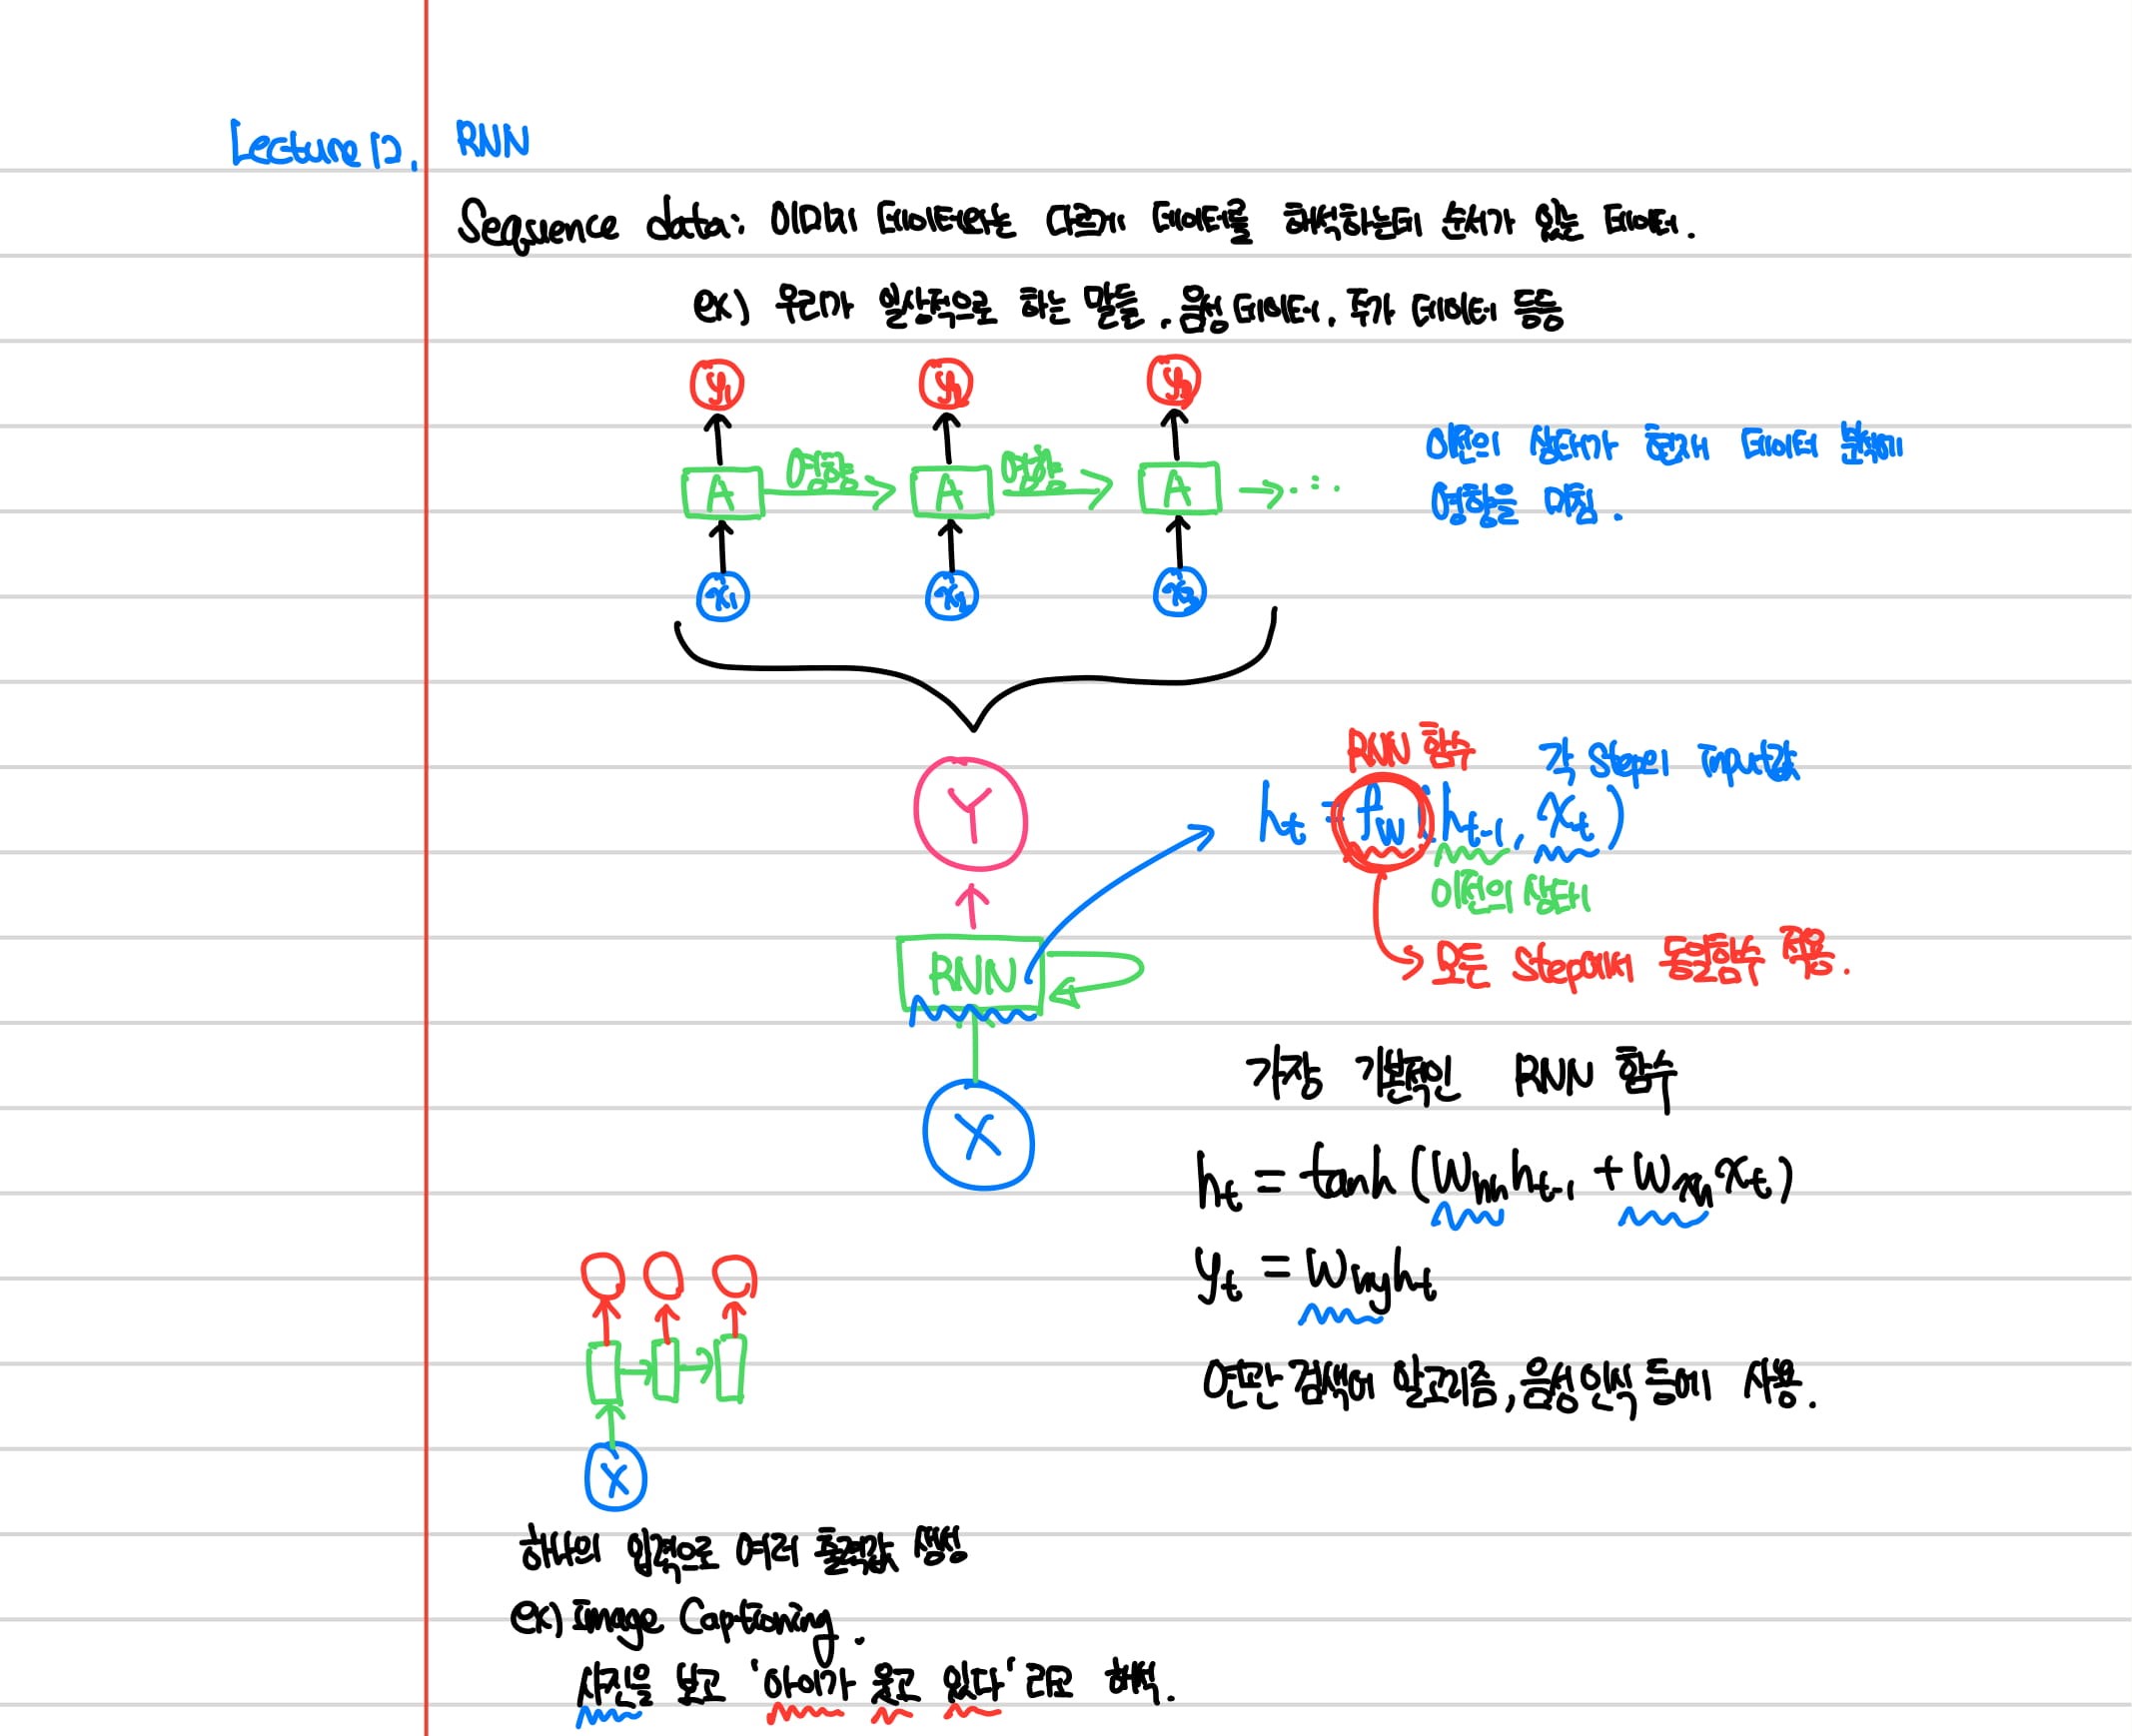 Lecture 12. RNN
Sequence data: 이미지 데이터와는 다르게 데이터를 해석하는데 순서가 있는 데이터.
ex) 우리가 일상적으로 하는 말들, 음성 데이터, 주가 데이터 등등
y₁ y₂ y₃
A 영향을 A 영향을 A → ...
이전의 상태가 현재 데이터 분석에
영향을 미침.
x₁ x₂ x₃
RNN 함수 각 step의 input값
Y
h_t = f_w(h_t-1, x_t)
이전의 상태
RNN
모든 step에서 동일한 함수 적용.
X
가장 기본적인 RNN 함수
h_t = tanh(W_hh h_t-1 + W_xh x_t)
y_t = W_hy h_t
연관 검색어 알고리즘, 음성인식 등에 사용.
X
하나의 입력으로 여러 출력값 생성
ex) Image Captioning.
사진을 보고 '아이가 울고 있다' 라고 해석.